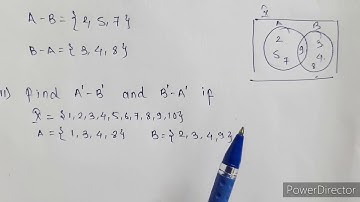 A-B = {2, 5, 7}
B-A = {3, 4, 8}
A B
2 9 3
5 7 4
8
11) Find A'-B' and B'-A' if
= {1,2,3,4,5,6,7,8,9,10}
A = {1, 3, 4, 8} B = {2, 3, 4, 9}
PowerDirector